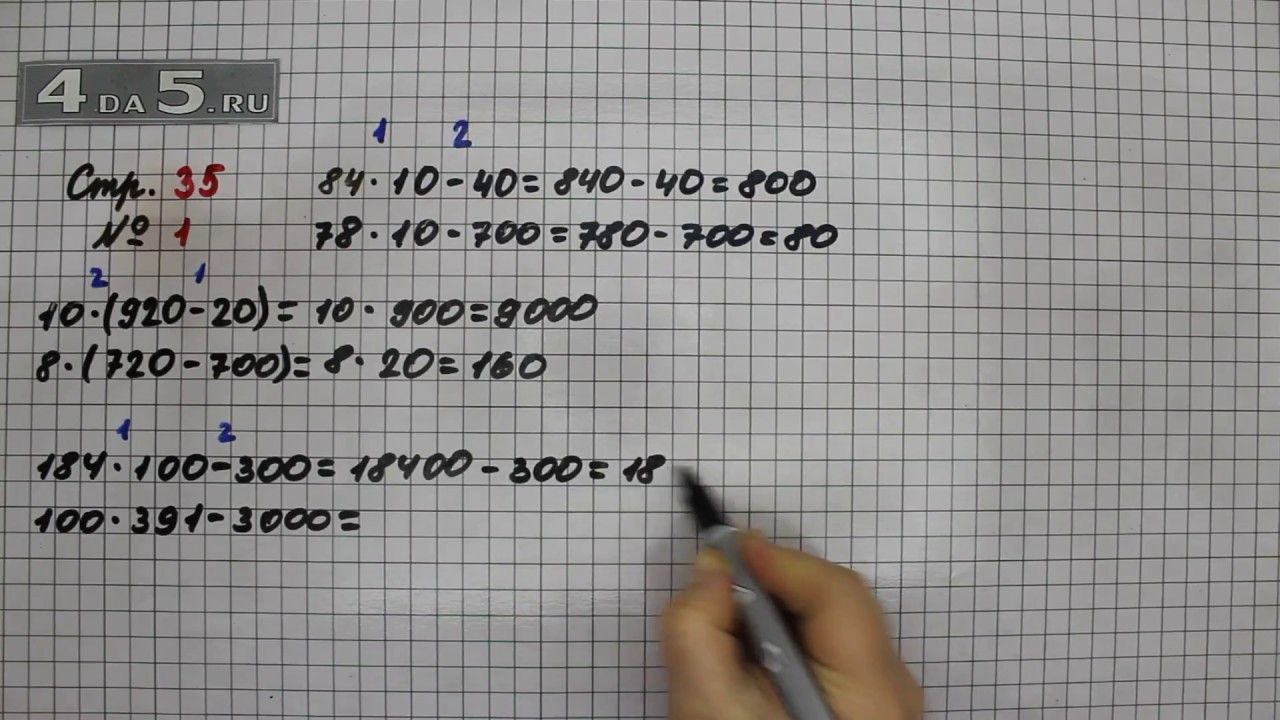 4 DA 5.RU
1 2
Стр. 35
84 · 10 - 40 = 840 - 40 = 800
№ 1
78 · 10 - 700 = 780 - 700 = 80
2 1
10 · (920 - 20) = 10 · 900 = 9000
8 · (720 - 700) = 8 · 20 = 160
1 2
184 · 100 - 300 = 18400 - 300 = 18
100 · 391 - 3000 =